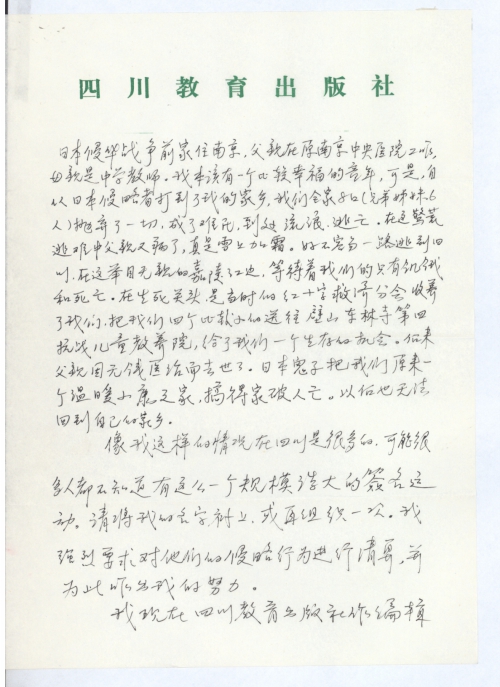 四川教育出版社
日本侵华战争前家住南京,父亲在原南京中央医院工作,
母亲是中学教师,我本该有一个比较幸福的童年,可是,自
从日本侵略者打到了我的家乡,我们全家8口(兄弟姊妹6
人)抛弃了一切,成了难民,到处流浪、逃亡。在这惊慌
逃难中父亲又病了,真是雪上加霜。好不容易一路逃到四
川,在这举目无亲的嘉陵江边,等待着我们的只有饥饿
和死亡。在生死关头,是当时的红十字救济分会收养
了我们,把我们四个比较小的送往璧山东林寺第四
抗战儿童教养院,给了我们一个生存的机会。后来
父亲因无钱医治而去世了。日本鬼子把我们原来一
个温暖小康之家,搞得家破人亡。以后也无法
回到自己的家乡。
像我这样的情况在四川是很多的,可能很
多人都不知道有这么一个规模浩大的签名运
动。请将我的名字附上,或再组织一次。我
强烈要求对他们的侵略行为进行清算,并
为此作出我的努力。
我现在四川教育出版社作编辑